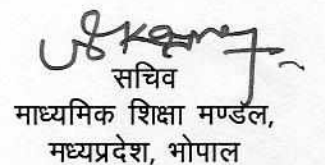 सचिव
माध्यमिक शिक्षा मण्डल,
मध्यप्रदेश, भोपाल